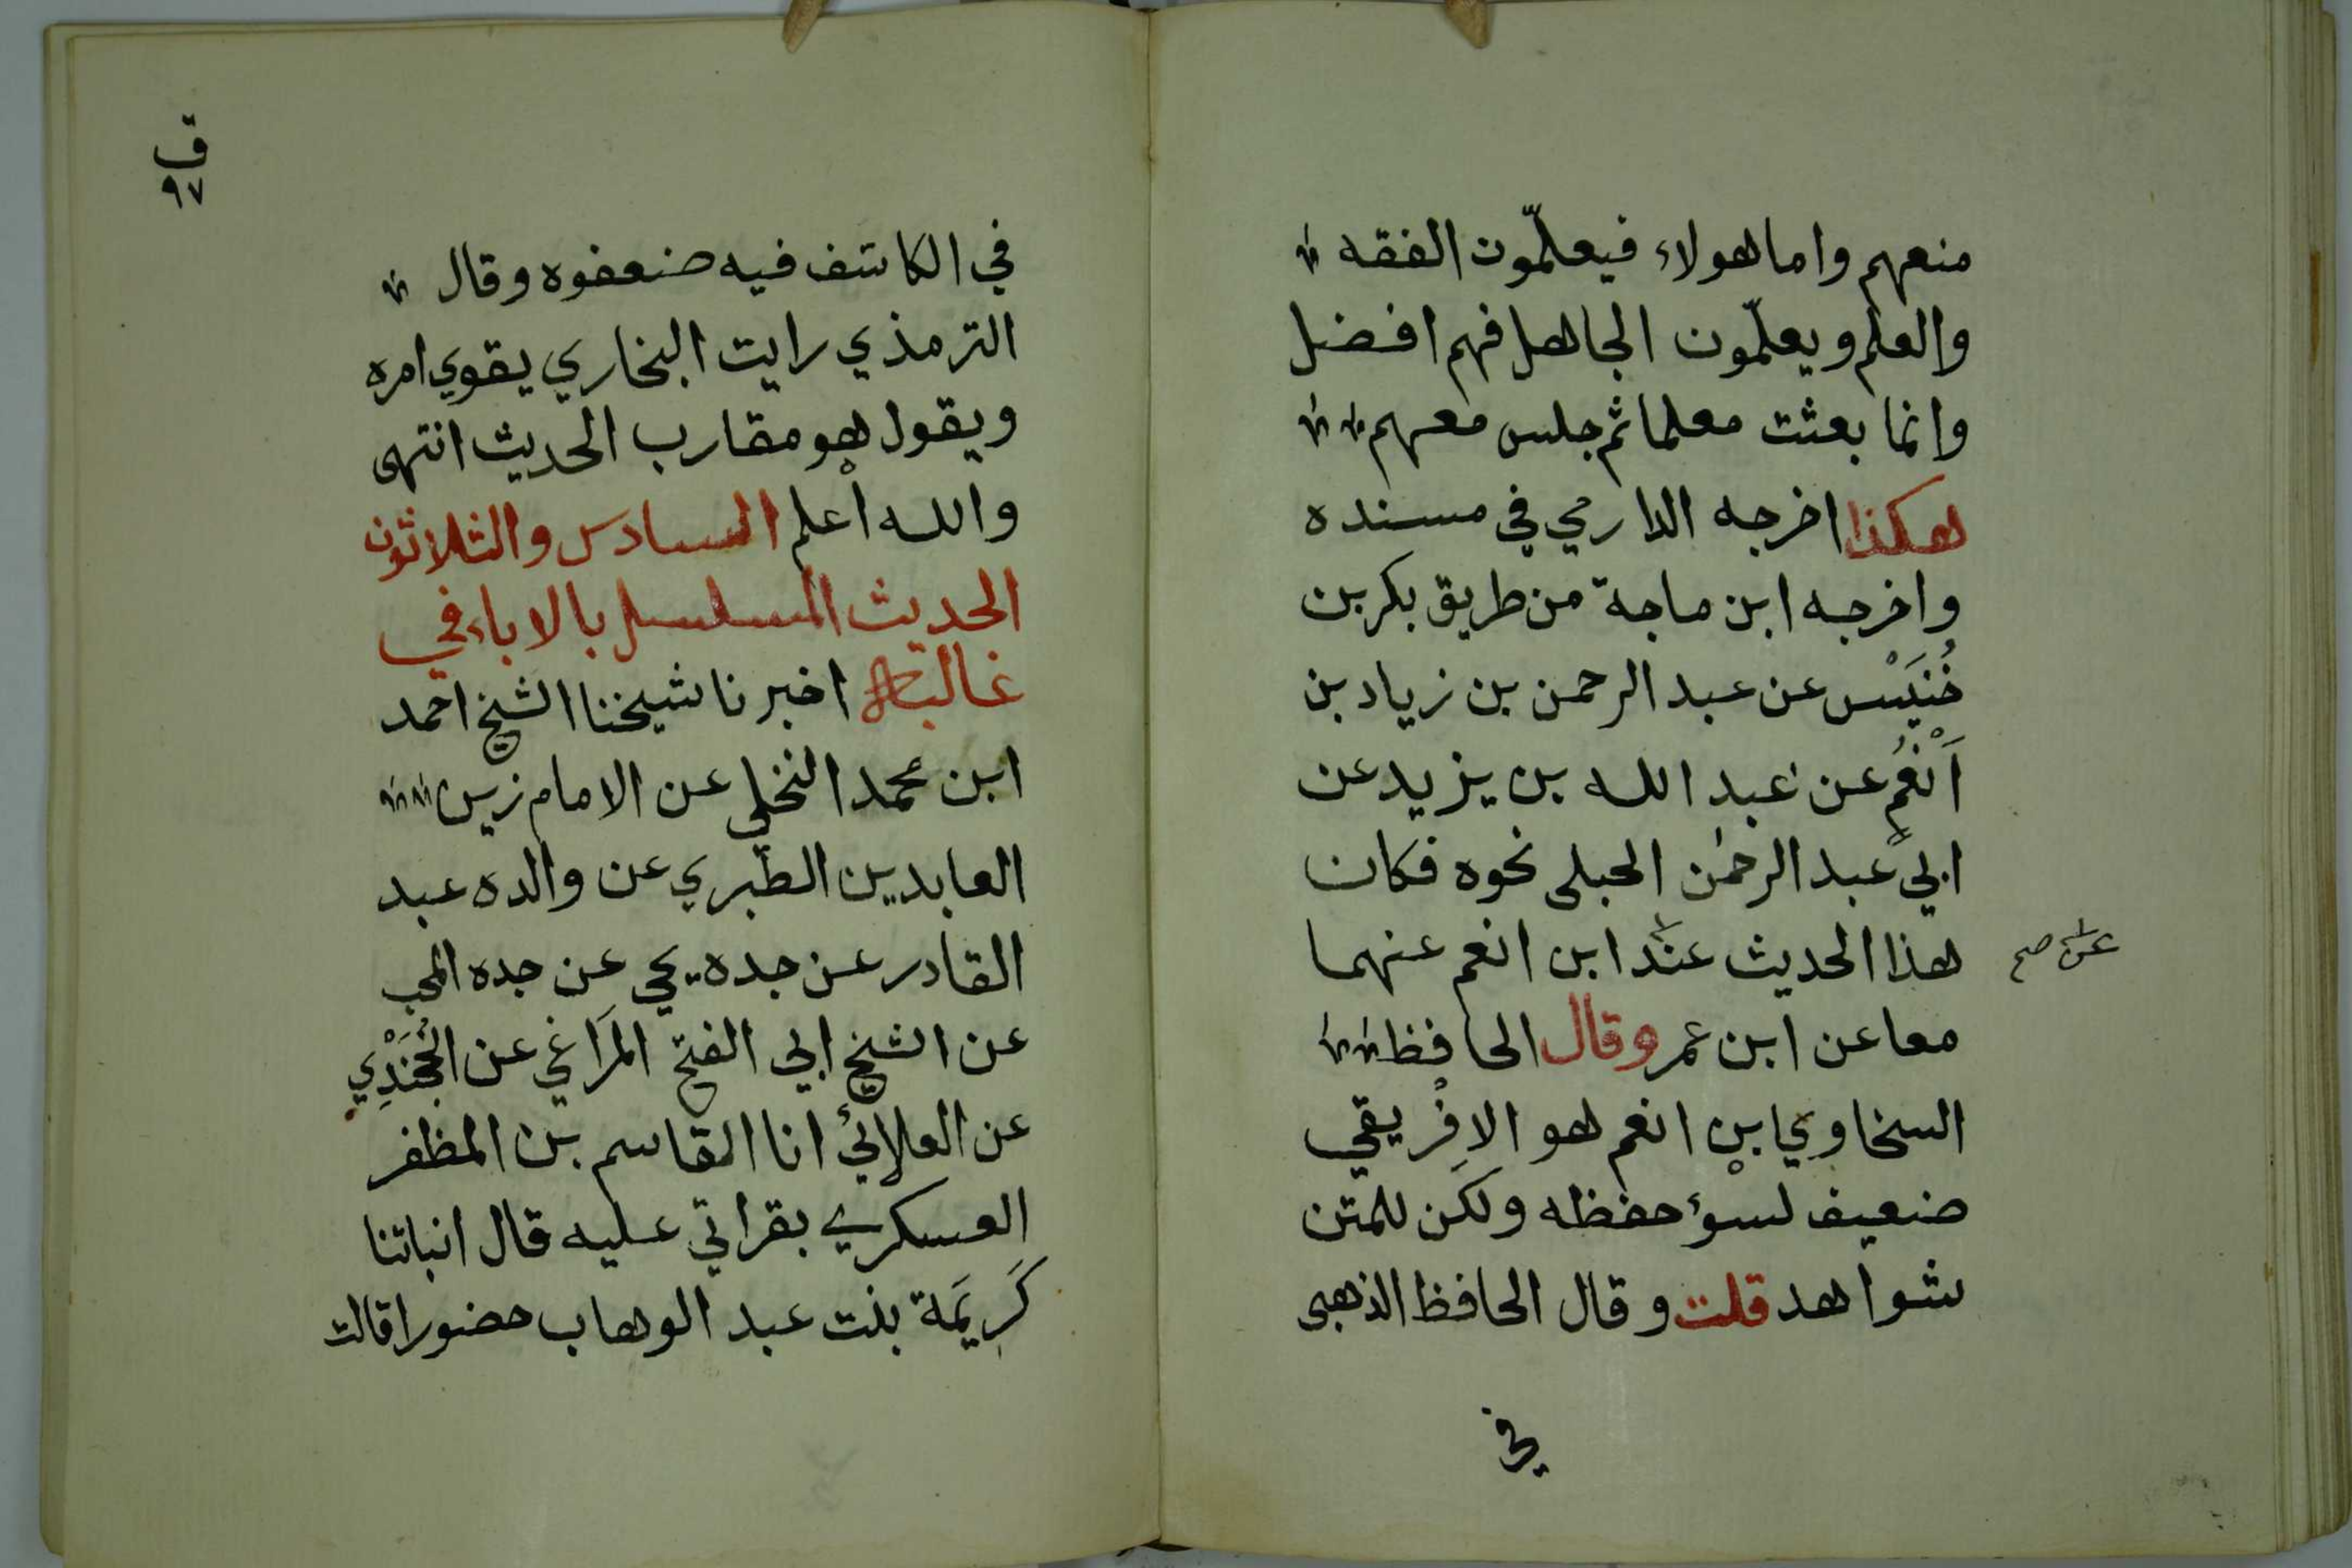 منعهم واما هولاء فيعلّمون الفقه
والعلم ويعلّمون الجاهل فهم افضل
وانما بعثت معلما ثم جلس معهم
هكذا اخرجه الدارمي في مسنده
واخرجه ابن ماجة من طريق بكر بن
خُنَيْس عن عبد الرحمن بن زياد بن
اَنْعُمٍ عن عبد الله بن يزيد عن
ابي عبد الرحمٰن الحبلى نحوه فكان
هذا الحديث عند ابن انعم عنهما
عن صح
معا عن ابن عمر وقال الحافظ
السخاوي ابن انعم هو الافْريقي
ضعيف لسوء حفظه ولكن للمتن
شواهد قلت وقال الحافظ الذهبى
في
ق
٩٧
في الكاشف فيه ضعفوه وقال
الترمذي رايت البخاري يقوي امره
ويقول هو مقارب الحديث انتهى
والله اعلم السادس والثلاثون
الحديث المسلسل بالاباء في
غالبه اخبرنا شيخنا الشيخ احمد
ابن محمد النخلي عن الامام زين
العابدين الطّبري عن والده عبد
القادر عن جده يحيى عن جده المحب
عن الشيخ ابي الفتح المَراغي عن الخُجَنْدِي
عن العلائي انا القاسم بن المظفر
العسكري بقراتي عليه قال انباتنا
كَرِيَمة بنت عبد الوهاب حضورا قالت